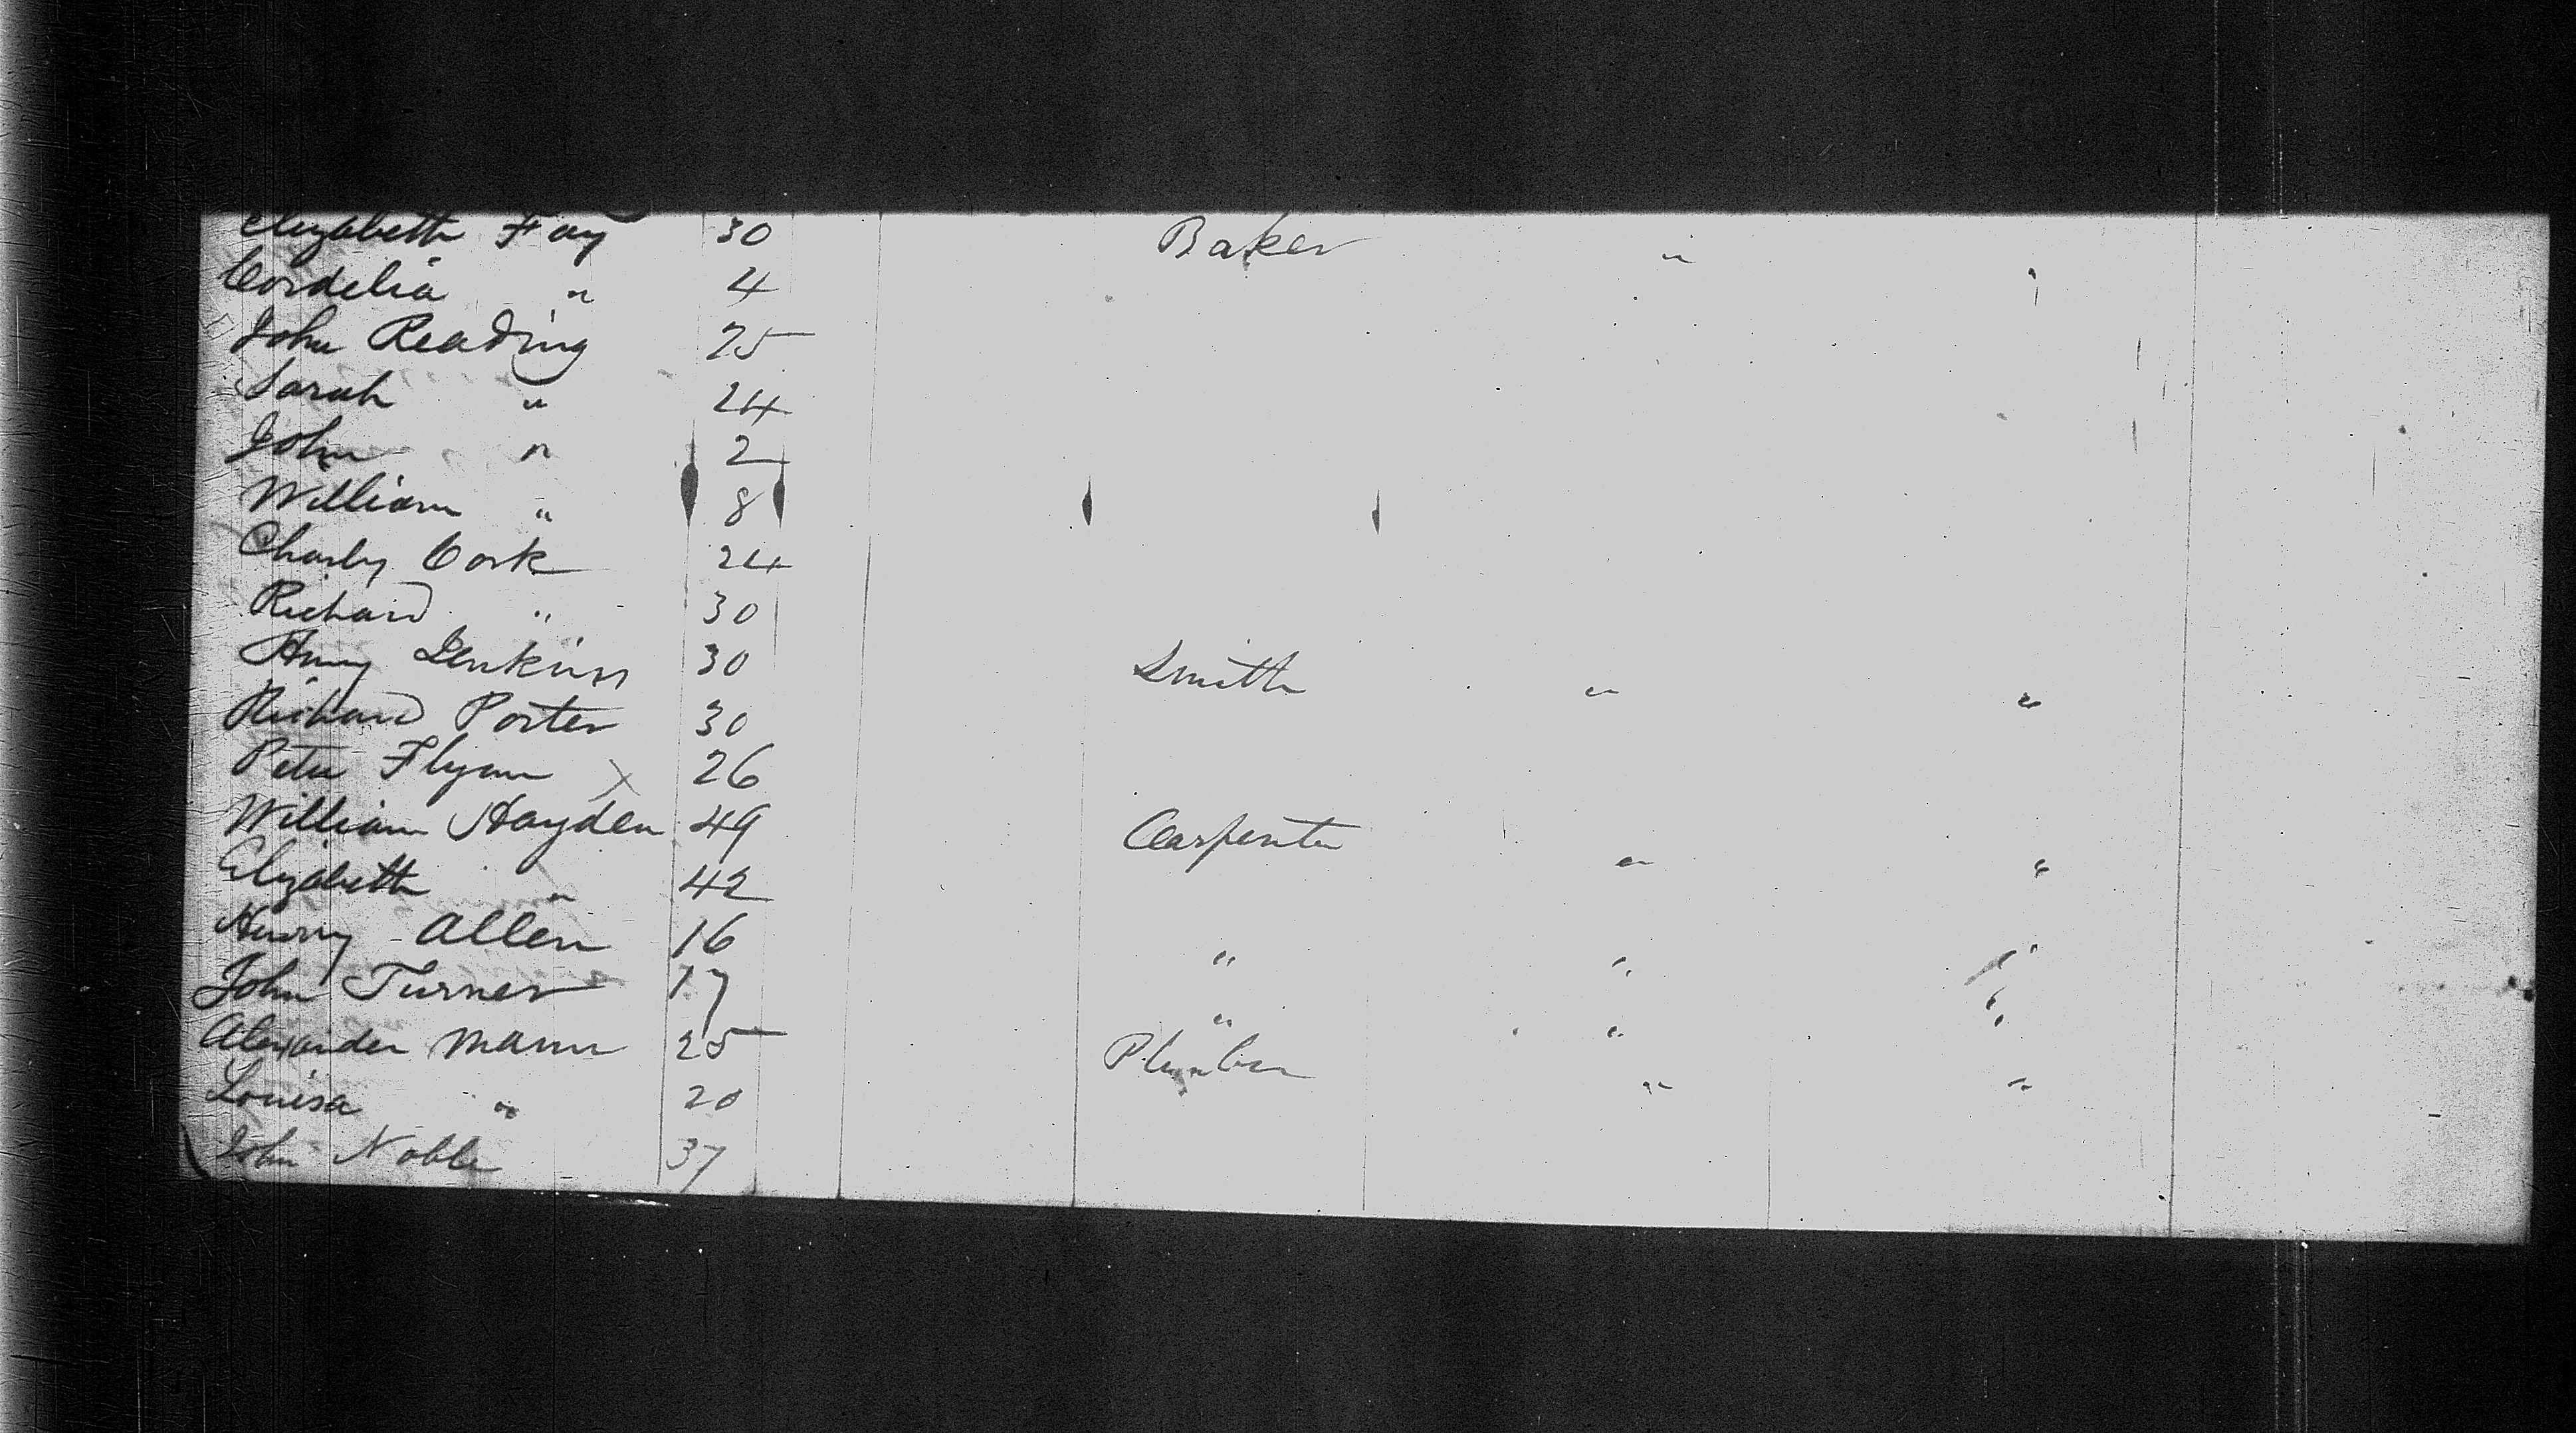 Elizabeth Fay 30 Baker " "
Cordelia " 4
John Reading 25
Sarah " 24
John " 2
William " 8
Charly Cork 24
Richard " 30
Henry Jenkins 30 Smith " "
Richard Porter 30
Peter Flynn x 26
William Hayden 49 Carpenter " "
Elizabeth " 42
Henry Allen 16 " " "
John Turner 17 " " "
Alexander Mann 25 Plumber " "
Louisa " 20
John Noble 37